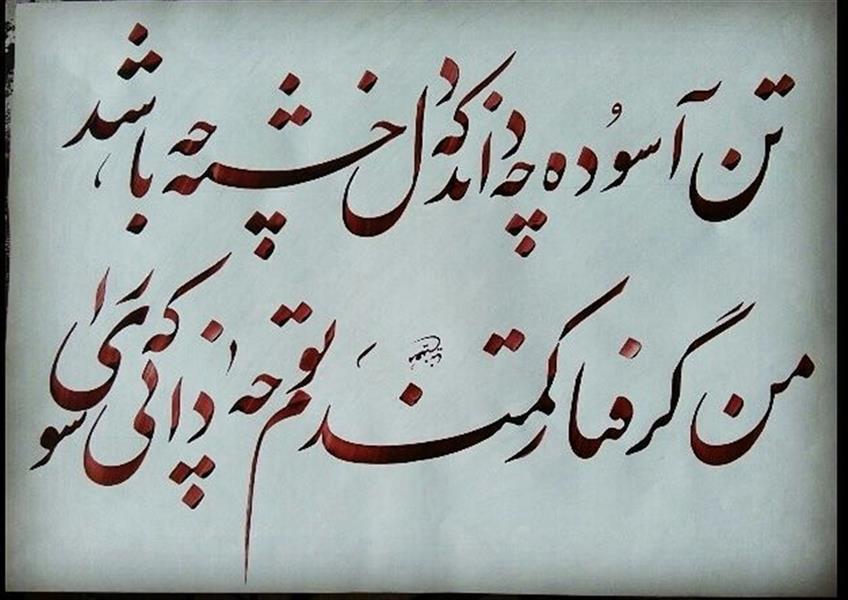 تن آسوده چه داند که دل خسته چه باشد
من گرفتار کمندم تو چه دانی که سواری